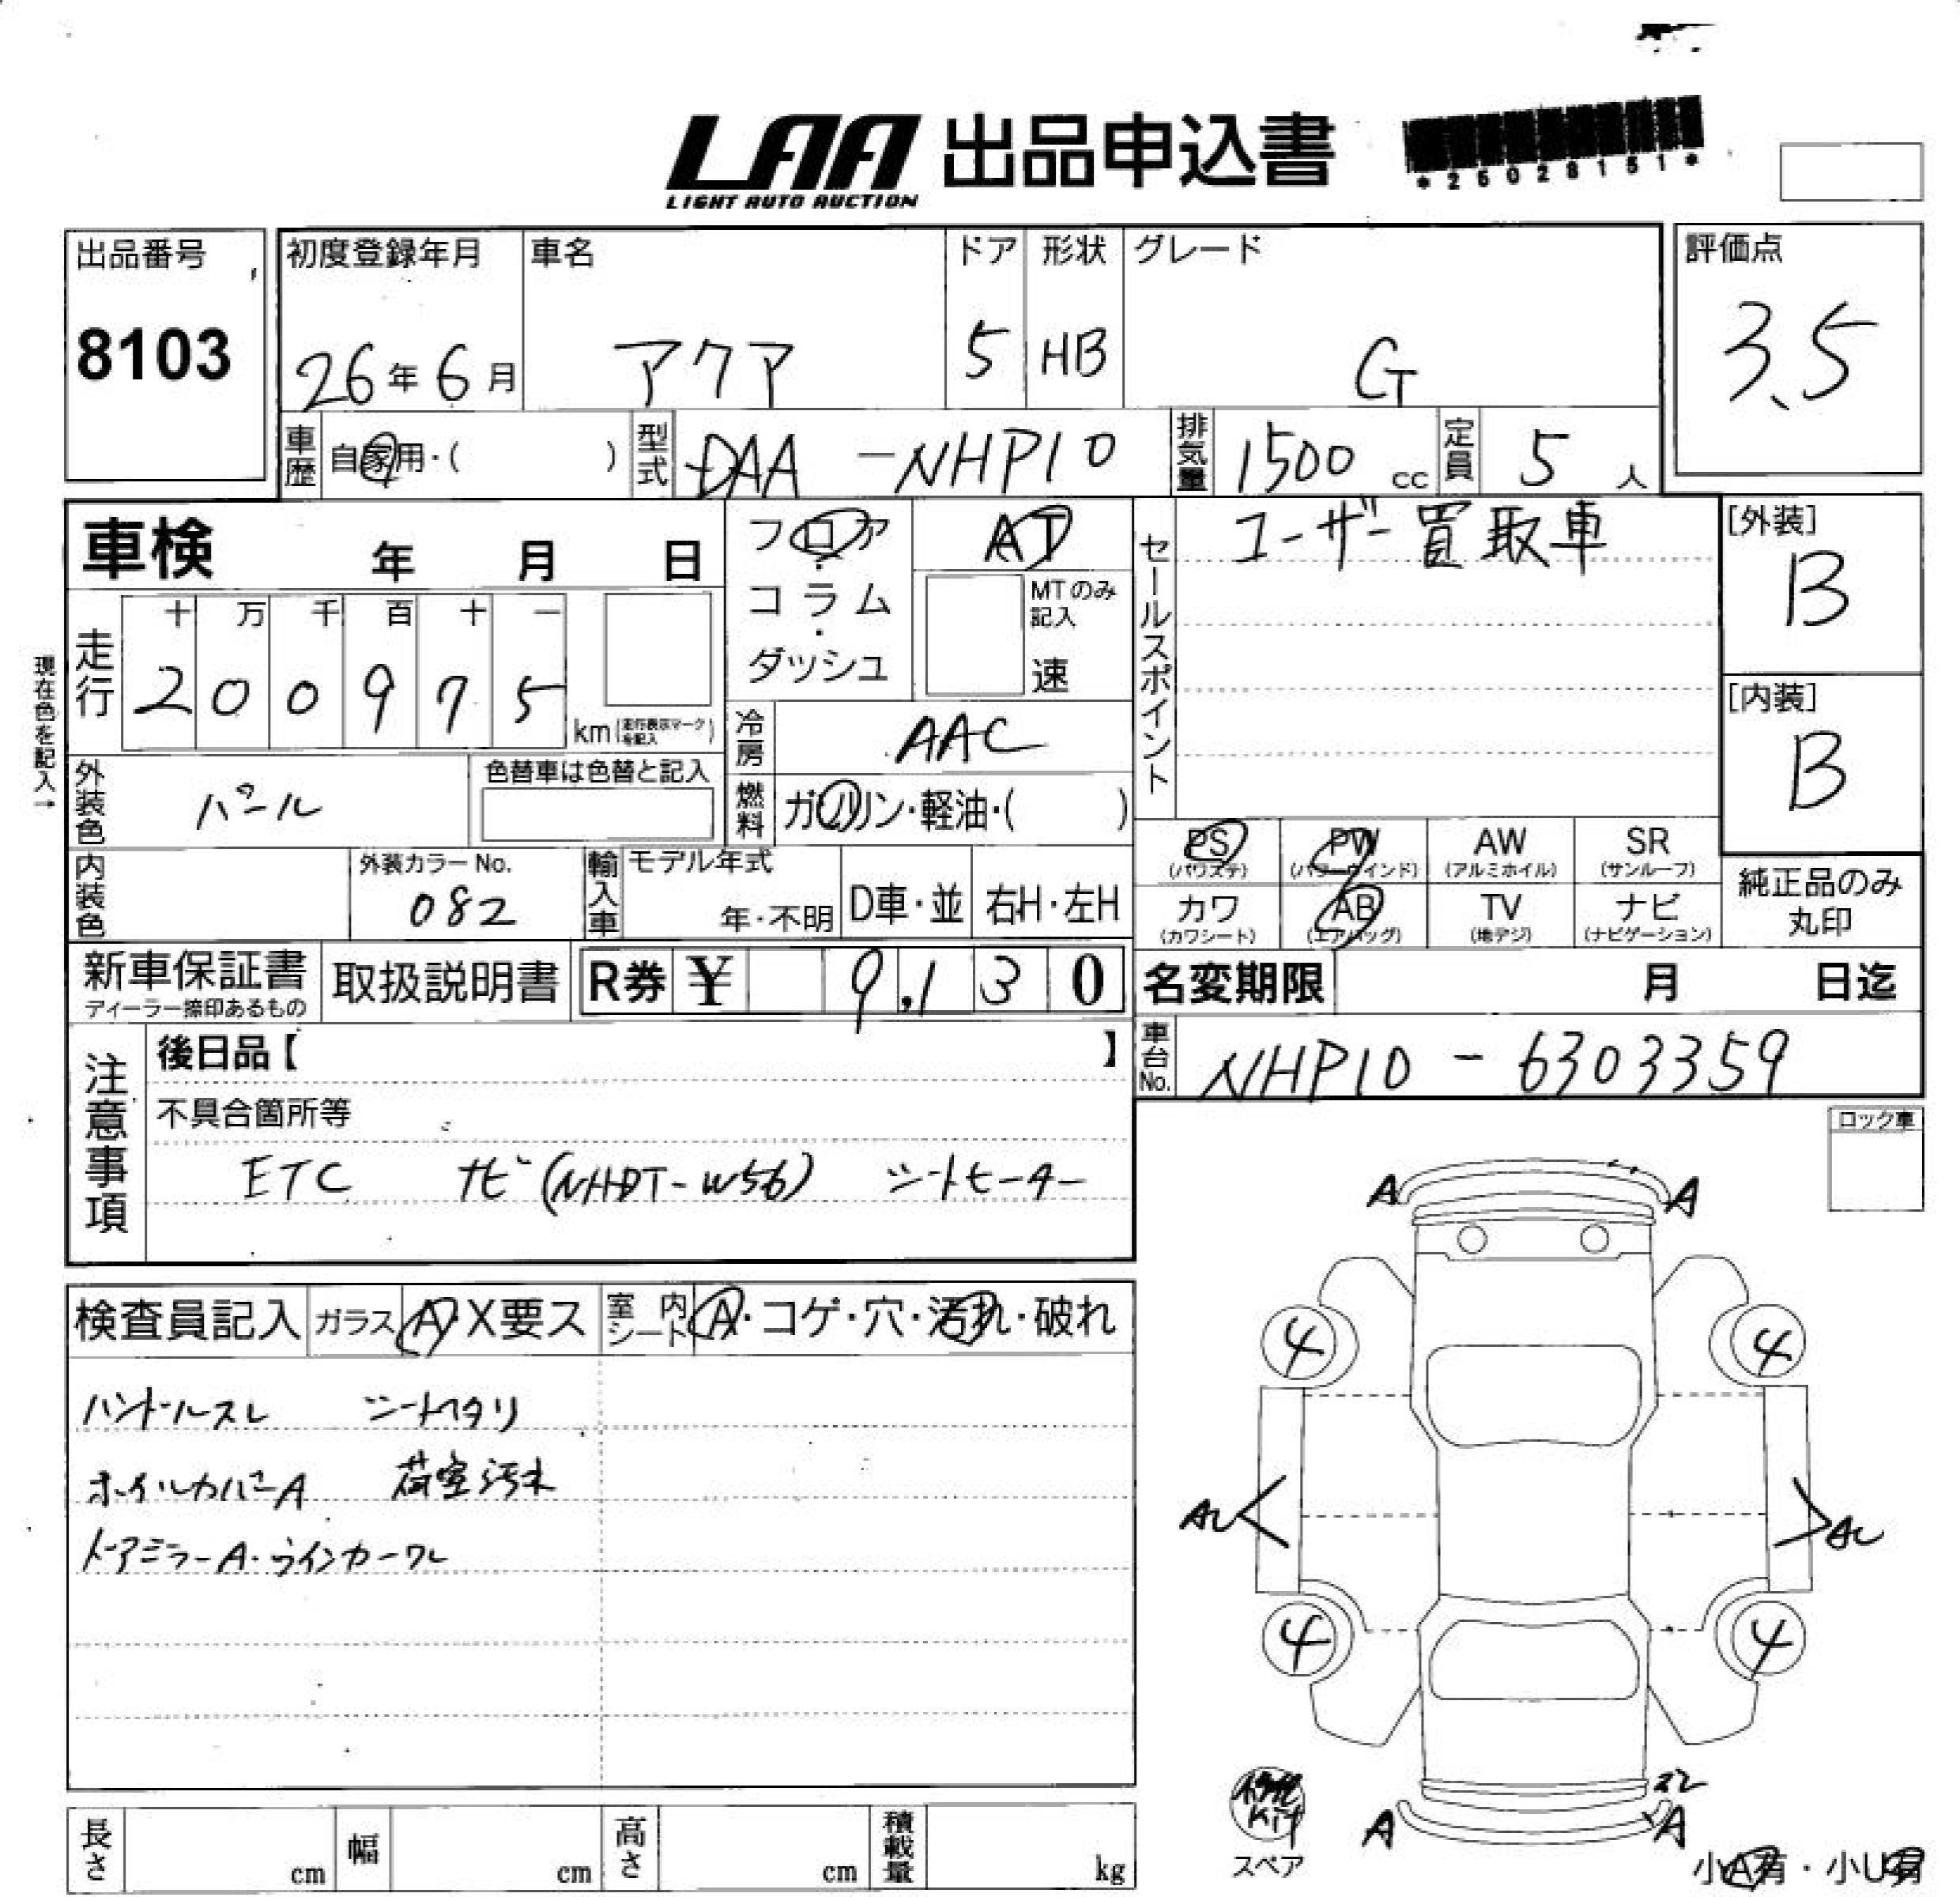 LAA 出品申込書
LIGHT AUTO AUCTION
*25028151*
出品番号
8103
初度登録年月
26年6月
車名
アクア
ドア
5
形状
HB
グレード
G
評価点
3.5
車歴 自家用・( )
型式 DAA-NHP10
排気量 1500 cc
定員 5 人
車検 年 月 日
フロア・コラム・ダッシュ
AT
MTのみ記入
速
セールスポイント
ユーザー買取車
[外装]
B
[内装]
B
現在色を記入→
走行
十 万 千 百 十 一
2 0 0 9 7 5
km(走行表示マークを記入)
冷房 AAC
外装色 パール
色替車は色替と記入
燃料 ガソリン・軽油・( )
内装色
外装カラーNo.
082
輸入車
モデル年式
年・不明
D車・並
右H・左H
PS (パワステ)
PW (パワーウインド)
AW (アルミホイル)
SR (サンルーフ)
カワ (カワシート)
AB (エアバッグ)
TV (地デジ)
ナビ (ナビゲーション)
純正品のみ丸印
新車保証書
ディーラー捺印あるもの
取扱説明書
R券 ¥ 9,130
名変期限 月 日迄
車台No. NHP10-6303359
注意事項
後日品【 】
不具合箇所等
ETC ナビ(NHDT-W56) シートヒーター
ロック車
検査員記入
ガラス A・X要ス
室内シート A・コゲ・穴・汚れ・破れ
ハンドルスレ シートヘタリ
ホイルカバーA 荷室汚れ
ドアミラーA・ウインカーワレ
A A
4 4
AU AU
4 4
A A
スペア
小A有・小U有
長さ cm
幅 cm
高さ cm
積載量 kg